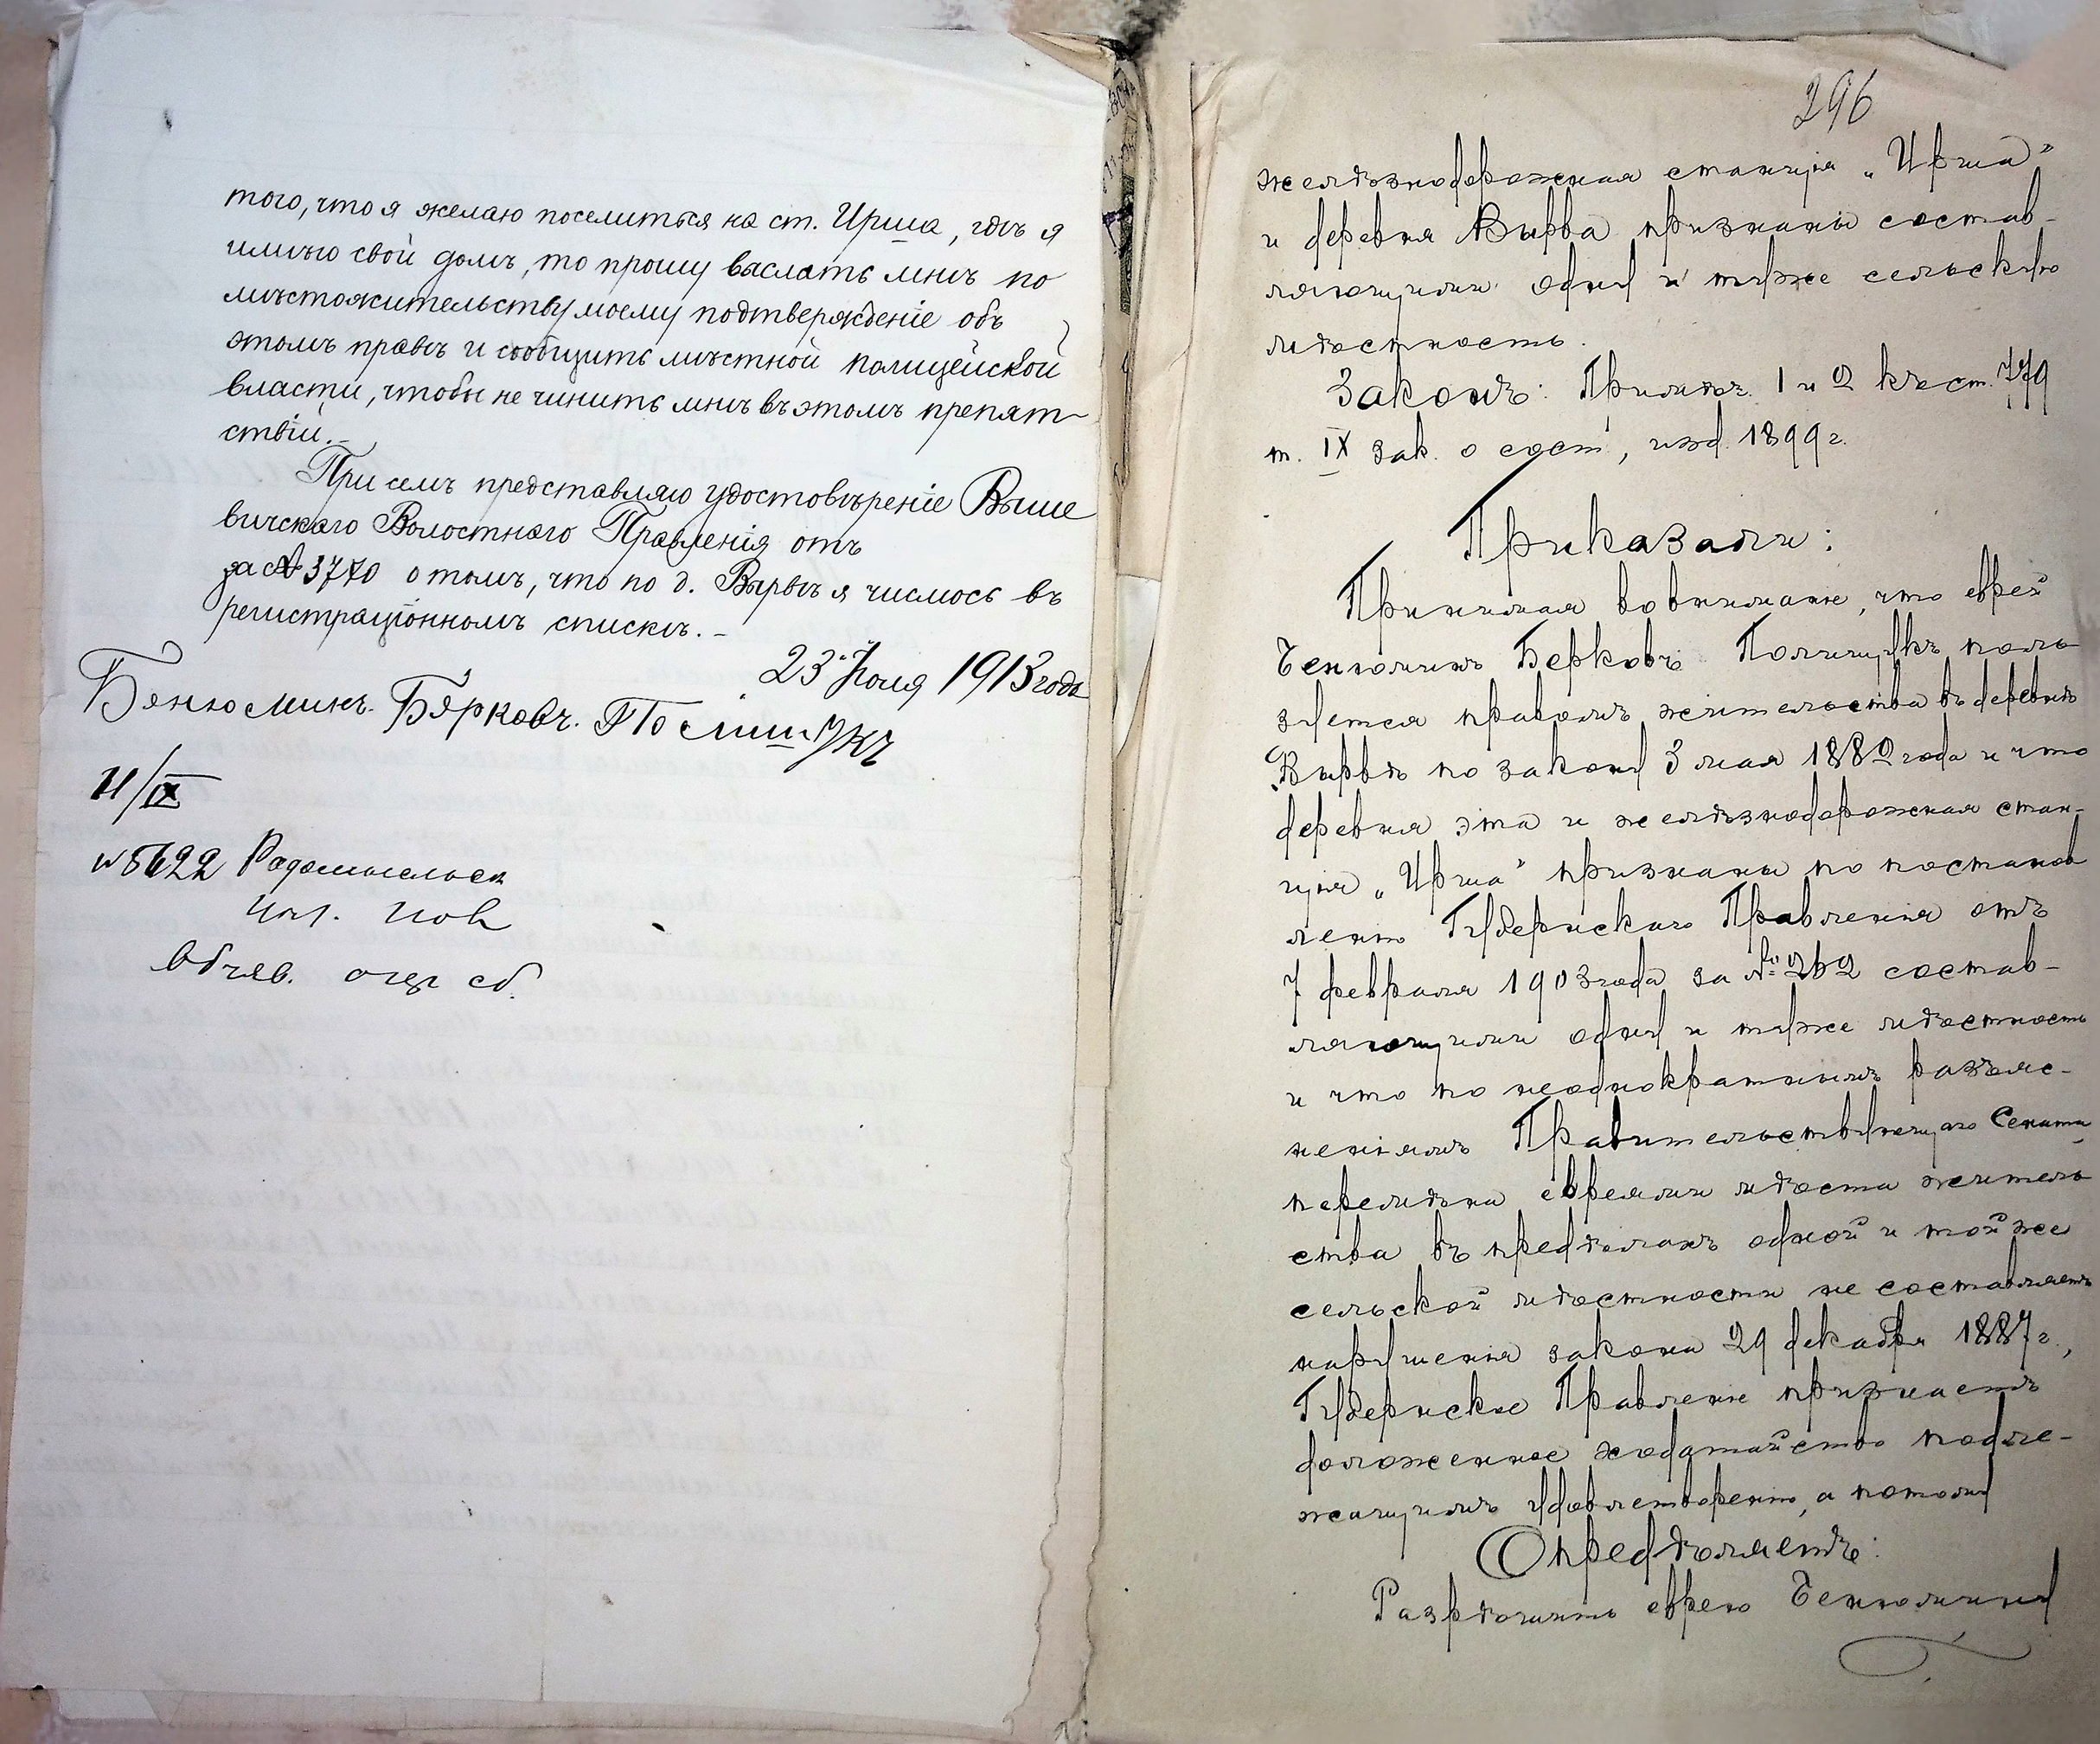 того, что я желаю поселиться на ст. Ирша, гдѣ я
имѣю свой домъ, то прошу выслать мнѣ по
мѣстожительству моему подтвержденіе объ
этомъ правѣ и сообщить мѣстной полицейской
власти, чтобы не чинить мнѣ въ этомъ препят-
ствій.-
При семъ представляю удостовѣреніе Выше
вичскаго Волостнаго Правленія отъ
за № 3770 о томъ, что по д. Вырвѣ я числюсь въ
регистраціонномъ спискѣ.-
23 Іюля 1913 года
Бенюминъ. Бэрковъ. Полищукъ
11/IX
№ 5622 Радомысльск
Объяв.
296
желѣзнодорожная станція „Ирша"
и деревня Вырва признаны состав-
ляющими одну и туже сельскую
мѣстность.
Законъ: Примѣч. 1 и 2 къ ст. 779
т. IX зак. о сост, изд. 1899 г.
Приказали:
Принимая во вниманіе, что еврей
Бенюминъ Берковъ Полищукъ поль
зуется правомъ жительства въ деревнѣ
Вырвѣ по закону 3 мая 1882 года и что
деревня эта и желѣзнодорожная стан-
ція „Ирша" признаны по постанов
ленію Губернскаго Правленія отъ
7 февраля 1903 года за № 262 состав-
ляющими одну и туже мѣстность
и что по неоднократнымъ разъяс-
неніямъ Правительствующаго Сената
перемѣна евреями мѣста житель
ства въ предѣлахъ одной и той же
сельской мѣстности не составляетъ
нарушенія закона 29 декабря 1887 г.,
Губернское Правленіе признаетъ
доложенное ходатайство подле-
жащимъ удовлетворенію, а потому
Опредѣляетъ:
Разрѣшить еврею Бенюмину